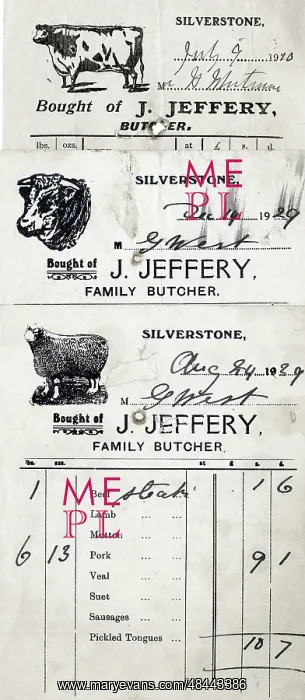 SILVERSTONE,
July 9 1910
Mr G
Bought of J. JEFFERY,
BUTCHER.
lbs. ozs. at £ s. d.
SILVERSTONE,
ME
PL
Dec 14 1929
M G West
Bought of J. JEFFERY,
FAMILY BUTCHER.
SILVERSTONE,
Aug 24 1929
M G West
Bought of J. JEFFERY,
FAMILY BUTCHER.
lbs. ozs. at £ s. d.
1 Beef steak 1 6
ME
PL
Lamb ... ...
Mutton ... ...
6 13 Pork ... ... 9 1
Veal ... ...
Suet ... ...
Sausages ... ...
Pickled Tongues ... 10 7
www.maryevans.com/48443386